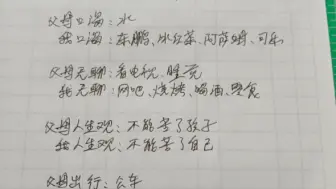 父母口渴：水
我口渴：东鹏、冰红茶、阿萨姆、可乐
父母无聊：看电视、睡觉
我无聊：网吧、烧烤、喝酒、零食
父母人生观：不能苦了孩子
我人生观：不能苦了自己
父母出行：公车